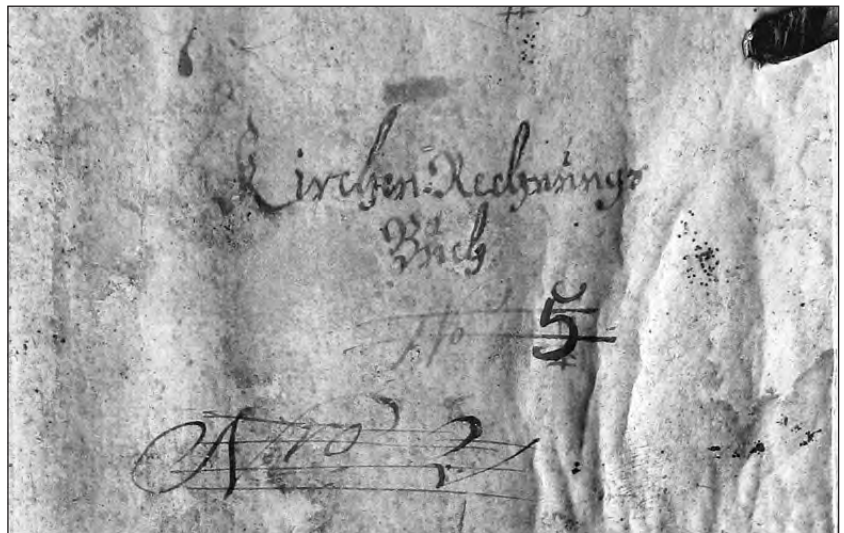 Kirchen-Rechnungs
Buch
No 5